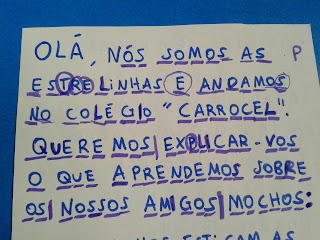 OLÁ, NÓS SOMOS AS P
ESTRELINHAS E ANDAMOS
NO COLÉGIO "CARROCEL".
QUEREMOS EXPLICAR-VOS
O QUE APRENDEMOS SOBRE
OS NOSSOS AMIGOS MOCHOS: